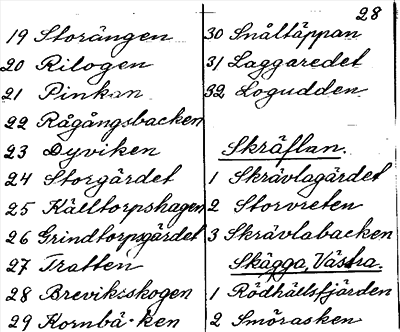 28
19 Storängen
20 Rilogen
21 Pinkan
22 Rågångsbacken
23 Dyviken
24 Storgärdet
25 Källtorpshagen
26 Grindtorpsgärdet
27 Tratten
28 Breviksskogen
29 Kornbäcken
30 Snåltäppan
31 Laggaredet
32 Logudden
Skräflan.
1 Skrävlagärdet
2 Storvreten
3 Skrävlabacken
Skägga, Västra.
1 Rödhällsfjärden
2 Smörasken